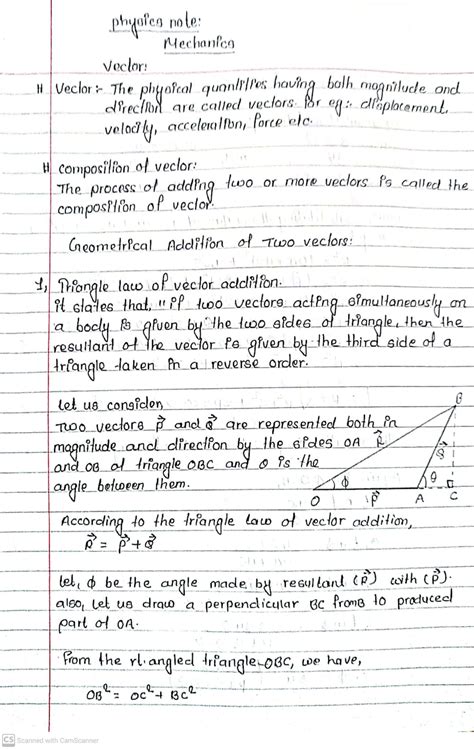 physics note:
Mechanics
Vector:
# Vector:- The physical quantities having both magnitude and
direction are called vectors for eg:- displacement,
velocity, acceleration, force etc.
# composition of vector:
The process of adding two or more vectors is called the
composition of vector.
Geometrical Addition of Two vectors:
1, Triangle law of vector addition.
it states that, "if two vectors acting simultaneously on
a body is given by the two sides of triangle, then the
resultant of the vector is given by the third side of a
triangle taken in a reverse order.
let us consider,
Two vectors P⃗ and Q⃗ are represented both in
magnitude and direction by the sides OA
and OB of triangle OBC and θ is the
angle between them.
B
R⃗
Q⃗
ϕ
θ
O P⃗ A C
According to the triangle law of vector addition,
R⃗ = P⃗ + Q⃗
let, ϕ be the angle made by resultant (R⃗) with (P⃗).
also, let us draw a perpendicular BC from B to produced
part of OA.
From the rt. angled triangle OBC, we have,
OB² = OC² + BC²
CS Scanned with CamScanner